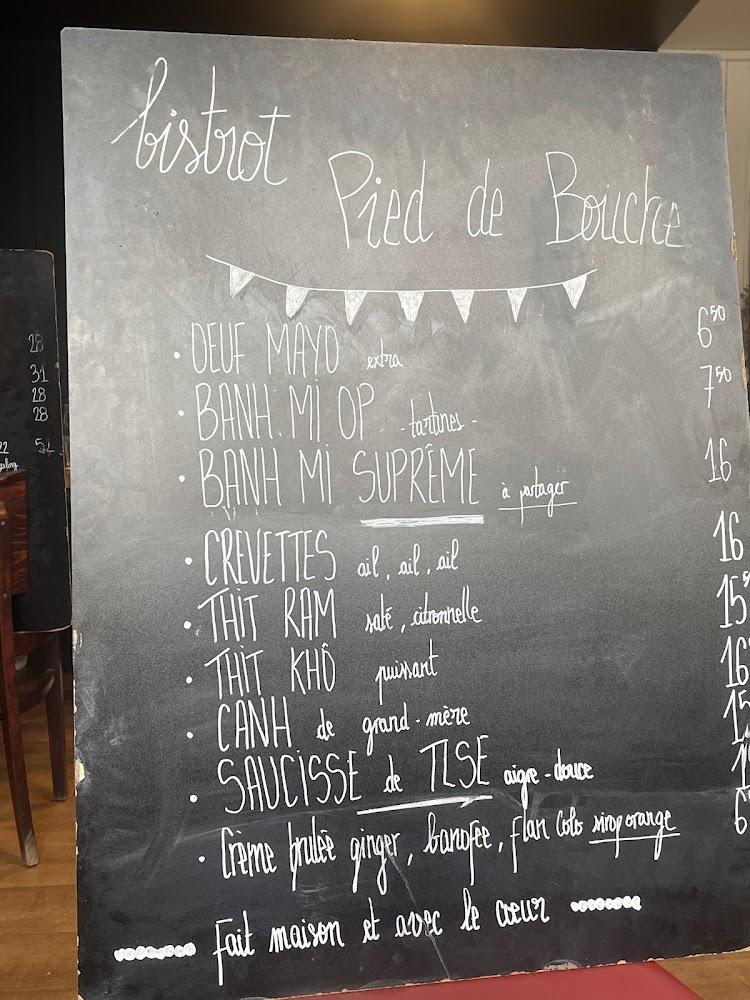 bistrot
Pied de Bouche
• OEUF MAYO extra 6⁵⁰
• BANH MI OP - tartines - 7⁵⁰
• BANH MI SUPRÊME à partager 16
• CREVETTES ail, ail, ail 16
• THIT RAM saté, citronnelle 15⁵
• THIT KHÔ puissant 16
• CANH de grand-mère 15
• SAUCISSE de TLSE aigre-douce
• Crème brulée ginger, banofee, flan coco sirop orange 6
Fait maison et avec le cœur
28
31
28
28
22 52